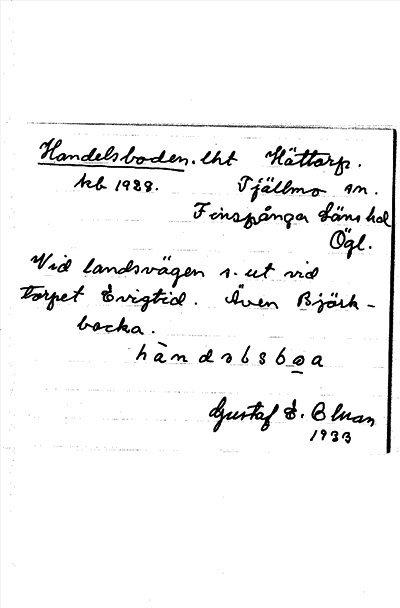 Handelsboden. lht Hättorp.
kb 1928. Tjällmo sn.
Finspånga läns hd
Ögl.
Vid landsvägen s. ut vid
torpet Evigtid. Även Björk-
backa.
Gustaf E. Elman
1933